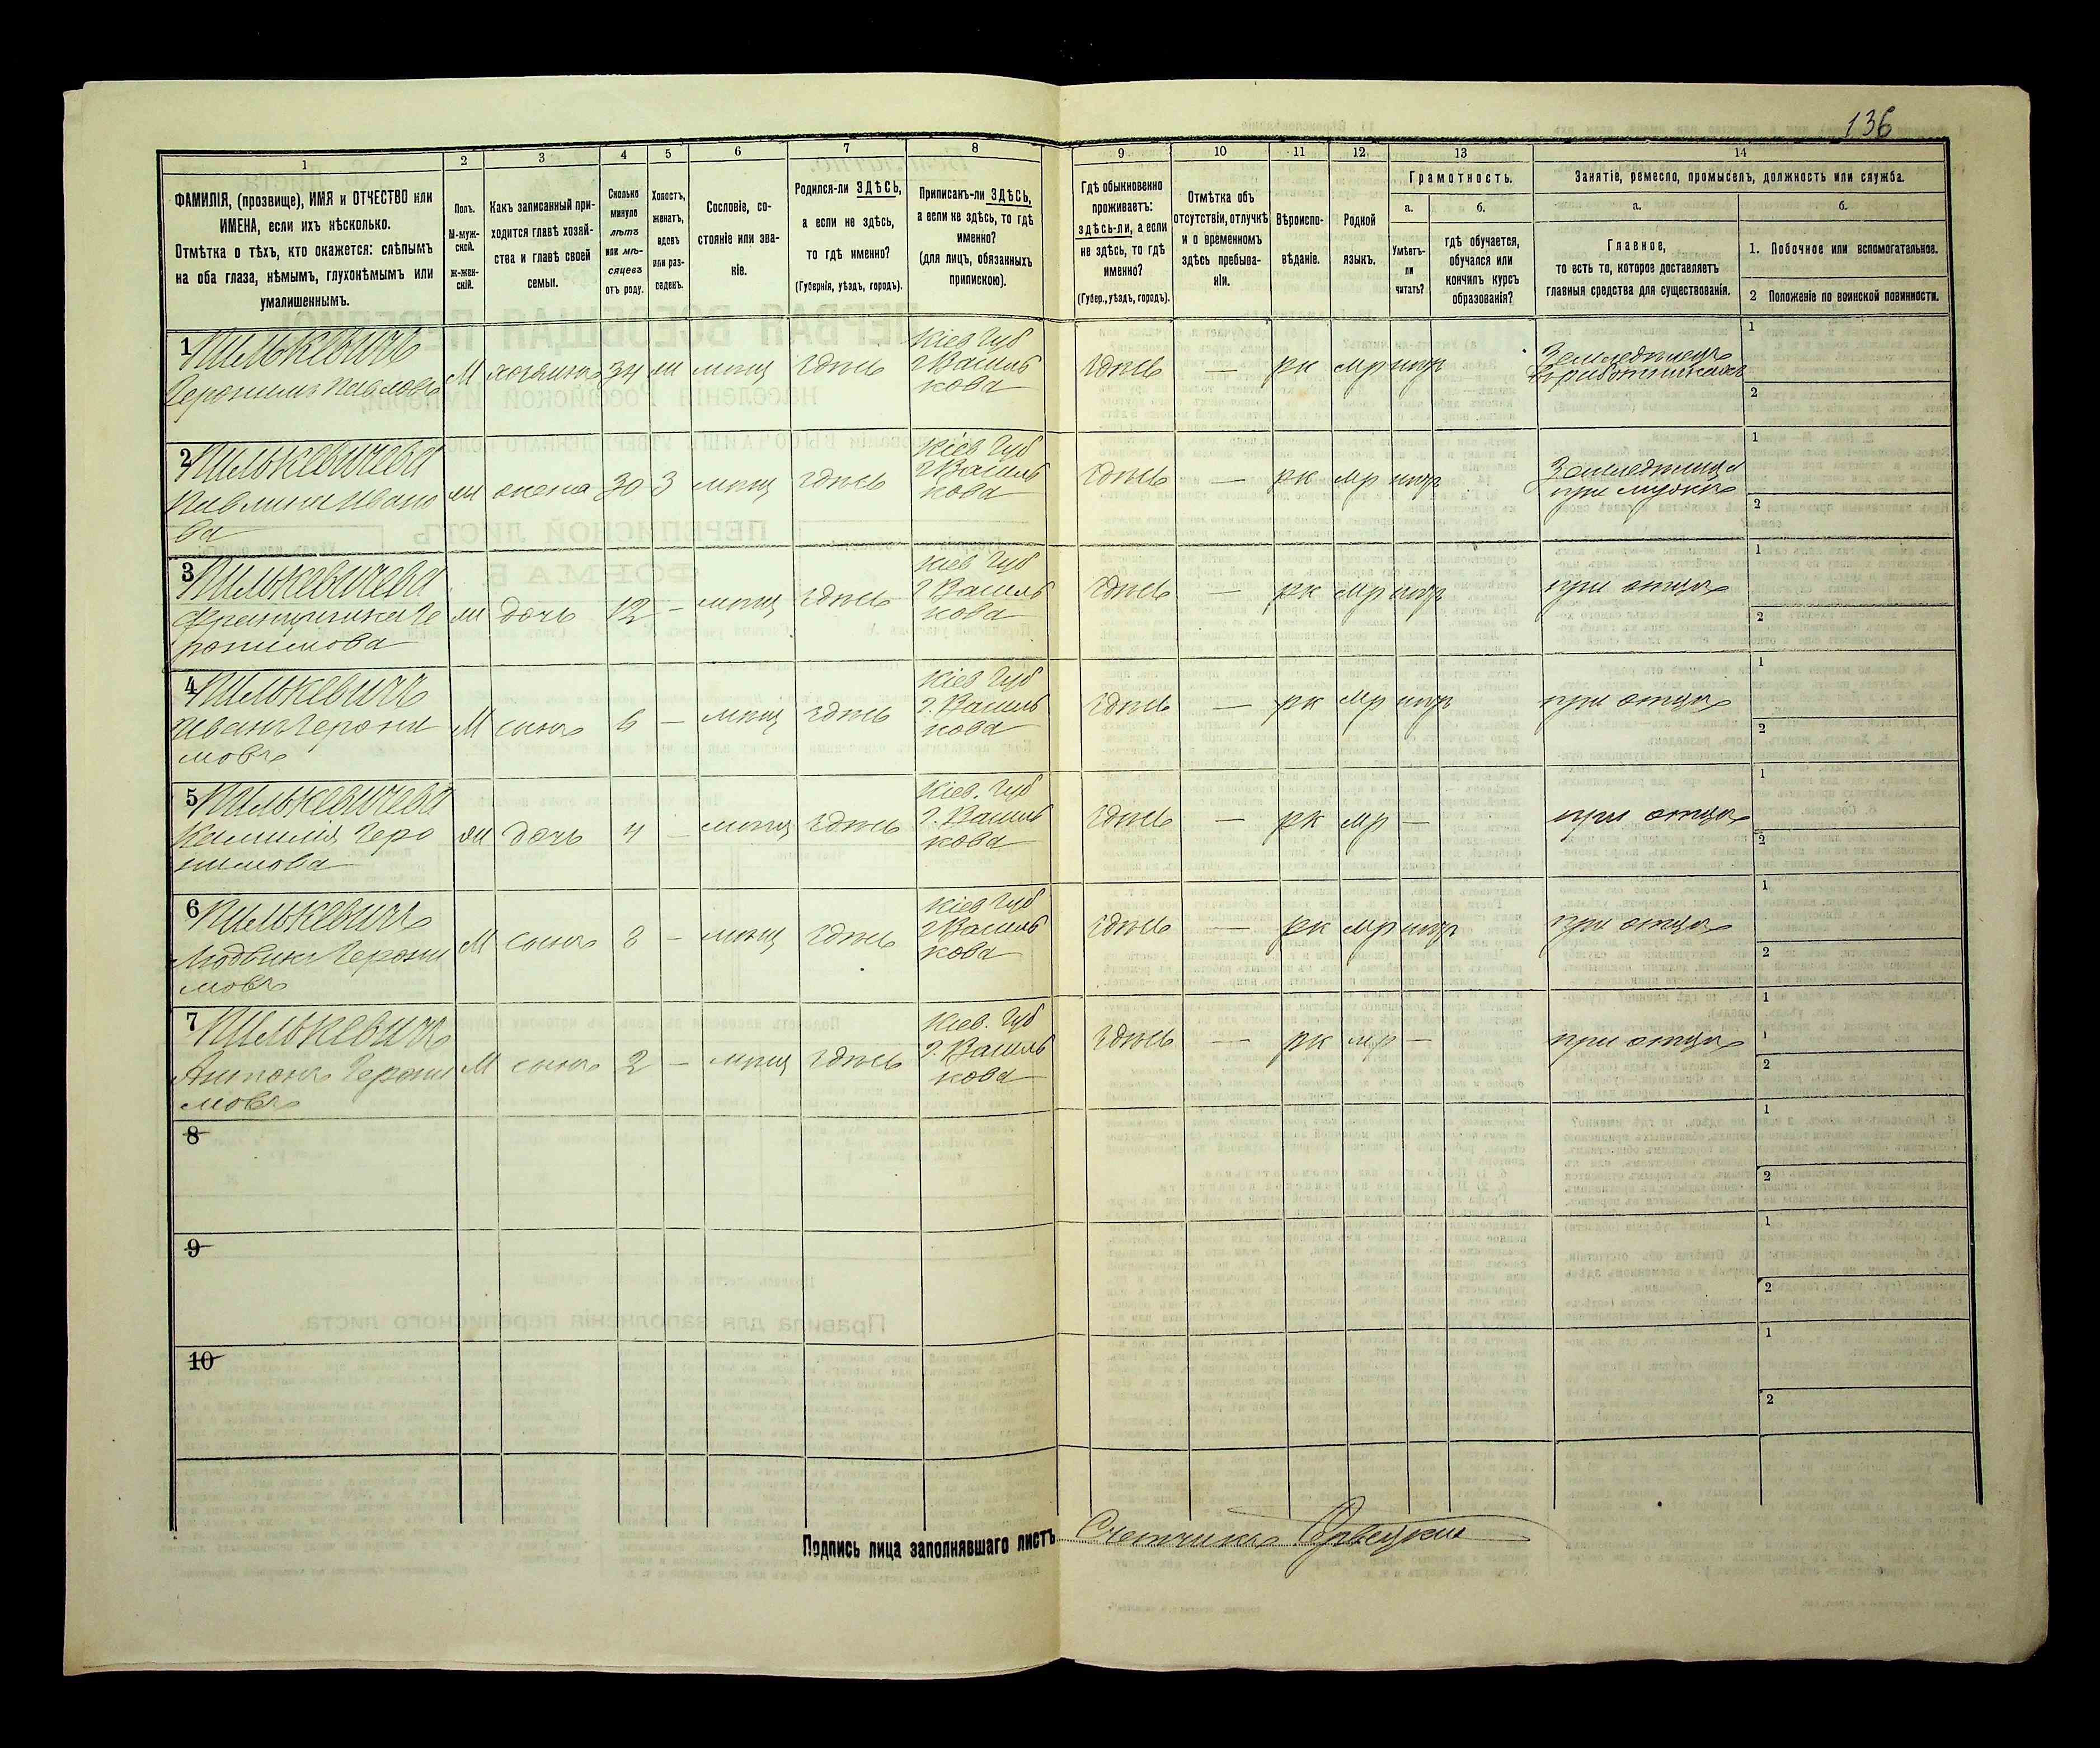 136
1
2
3
4
5
6
7
8
9
10
11
12
13
14
ФАМИЛІЯ, (прозвище), ИМЯ и ОТЧЕСТВО или
ИМЕНА, если ихъ нѣсколько.
Отмѣтка о тѣхъ, кто окажется: слѣпымъ
на оба глаза, нѣмымъ, глухонѣмымъ или
умалишеннымъ.
Полъ.
М-муж-
ской.
ж-жен-
скій.
Какъ записанный при-
ходится главѣ хозяй-
ства и главѣ своей
семьи.
Сколько
минуло
лѣтъ
или мѣ-
сяцевъ
отъ роду.
Холостъ,
женатъ,
вдовъ
или раз-
веденъ.
Сословіе, со-
стояніе или зва-
ніе.
Родился-ли ЗДѢСЬ,
а если не здѣсь,
то гдѣ именно?
(Губернія, уѣздъ, городъ).
Приписанъ-ли ЗДѢСЬ,
а если не здѣсь, то гдѣ
именно?
(для лицъ, обязанныхъ
припискою).
Гдѣ обыкновенно
проживаетъ:
здѣсь-ли, а если
не здѣсь, то гдѣ
именно?
(Губер., уѣздъ, городъ).
Отмѣтка объ
отсутствіи, отлучкѣ
и о временномъ
здѣсь пребыва-
ніи.
Вѣроиспо-
вѣданіе.
Родной
языкъ.
Грамотность.
а.
Умѣетъ-
ли
читать?
б.
гдѣ обучается,
обучался или
кончилъ курсъ
образованія?
Занятіе, ремесло, промыселъ, должность или служба.
а.
Главное,
то есть то, которое доставляетъ
главныя средства для существованія.
б.
1. Побочное или вспомогательное.
2 Положеніе по воинской повинности.
1 Пилькевичъ
Іеронимъ Павловъ
М хозяинъ 34 ж мѣщ здѣсь
Кіев Губ
г Василь
кова
здѣсь — рк мр нгр
Земледѣлецъ
1
2
2 Пилькевичева
Павлина Ивано
ва
ж жена 30 З мѣщ здѣсь
Кіев Губ
г Василь
кова
здѣсь — рк мр нгр
при мужѣ
1
2
3 Пилькевичева
Францишка Іе
ронимова
ж дочь 12 — мѣщ здѣсь
Кіев Губ
г Василь
кова
здѣсь — рк мр нгр при отцѣ
1
2
4 Пилькевичъ
Иванъ Іерони
мовъ
М сынъ 6 — мѣщ здѣсь
Кіев Губ
г. Василь
кова
здѣсь — рк мр нгр при отцѣ
1
2
5 Пилькевичева
Камилія Іеро
нимова
ж дочь 4 — мѣщ здѣсь
Кіев. Губ
г. Василь
кова
здѣсь — рк мр — при отцѣ
1
2
6 Пилькевичъ
Людвикъ Іерони
мовъ
М сынъ 3 — мѣщ здѣсь
Кіев Губ
г Василь
кова
здѣсь — рк мр нгр при отцѣ
1
2
7 Пилькевичъ
Антонъ Іерони
мовъ
М сынъ 2 — мѣщ здѣсь
Кіев. Губ
г. Василь
кова
здѣсь — рк мр — при отцѣ
1
1
2
8
1
2
9
1
2
10
1
2
Подпись лица заполнявшаго листъ Счетчикъ